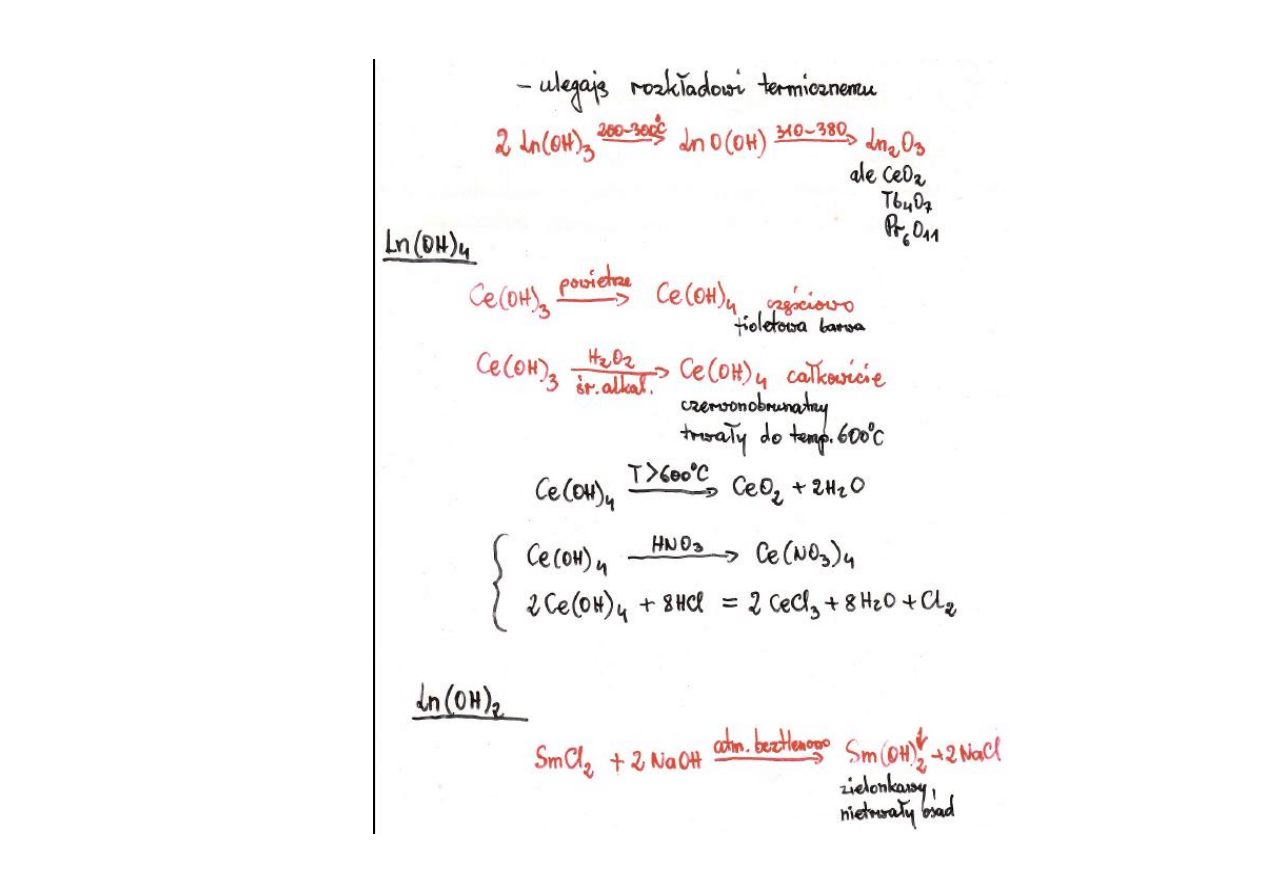 - ulegają rozkładowi termicznemu
2 Ln(OH)₃ 200-300°C → LnO(OH) 310-380 → Ln₂O₃
ale CeO₂
Tb₄O₇
Pr₆O₁₁
Ln(OH)₄
Ce(OH)₃ powietrze → Ce(OH)₄ częściowo
fioletowa barwa
Ce(OH)₃ H₂O₂ śr. alkal. → Ce(OH)₄ całkowicie
czerwonobrunatny
trwały do temp. 600°C
Ce(OH)₄ T>600°C → CeO₂ + 2H₂O
Ce(OH)₄ HNO₃ → Ce(NO₃)₄
2Ce(OH)₄ + 8HCl = 2CeCl₃ + 8H₂O + Cl₂
Ln(OH)₂
SmCl₂ + 2NaOH atm. beztlenowa → Sm(OH)₂↓ + 2NaCl
zielonkawy,
nietrwały osad